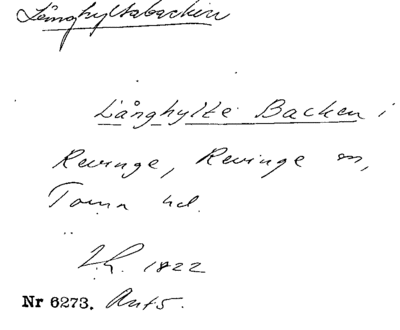 Långhyltabacken
Långhylte Backen i
Revinge, Revinge sn,
Torna hd.
Lh. 1822
Nr 6273. Ant 5.